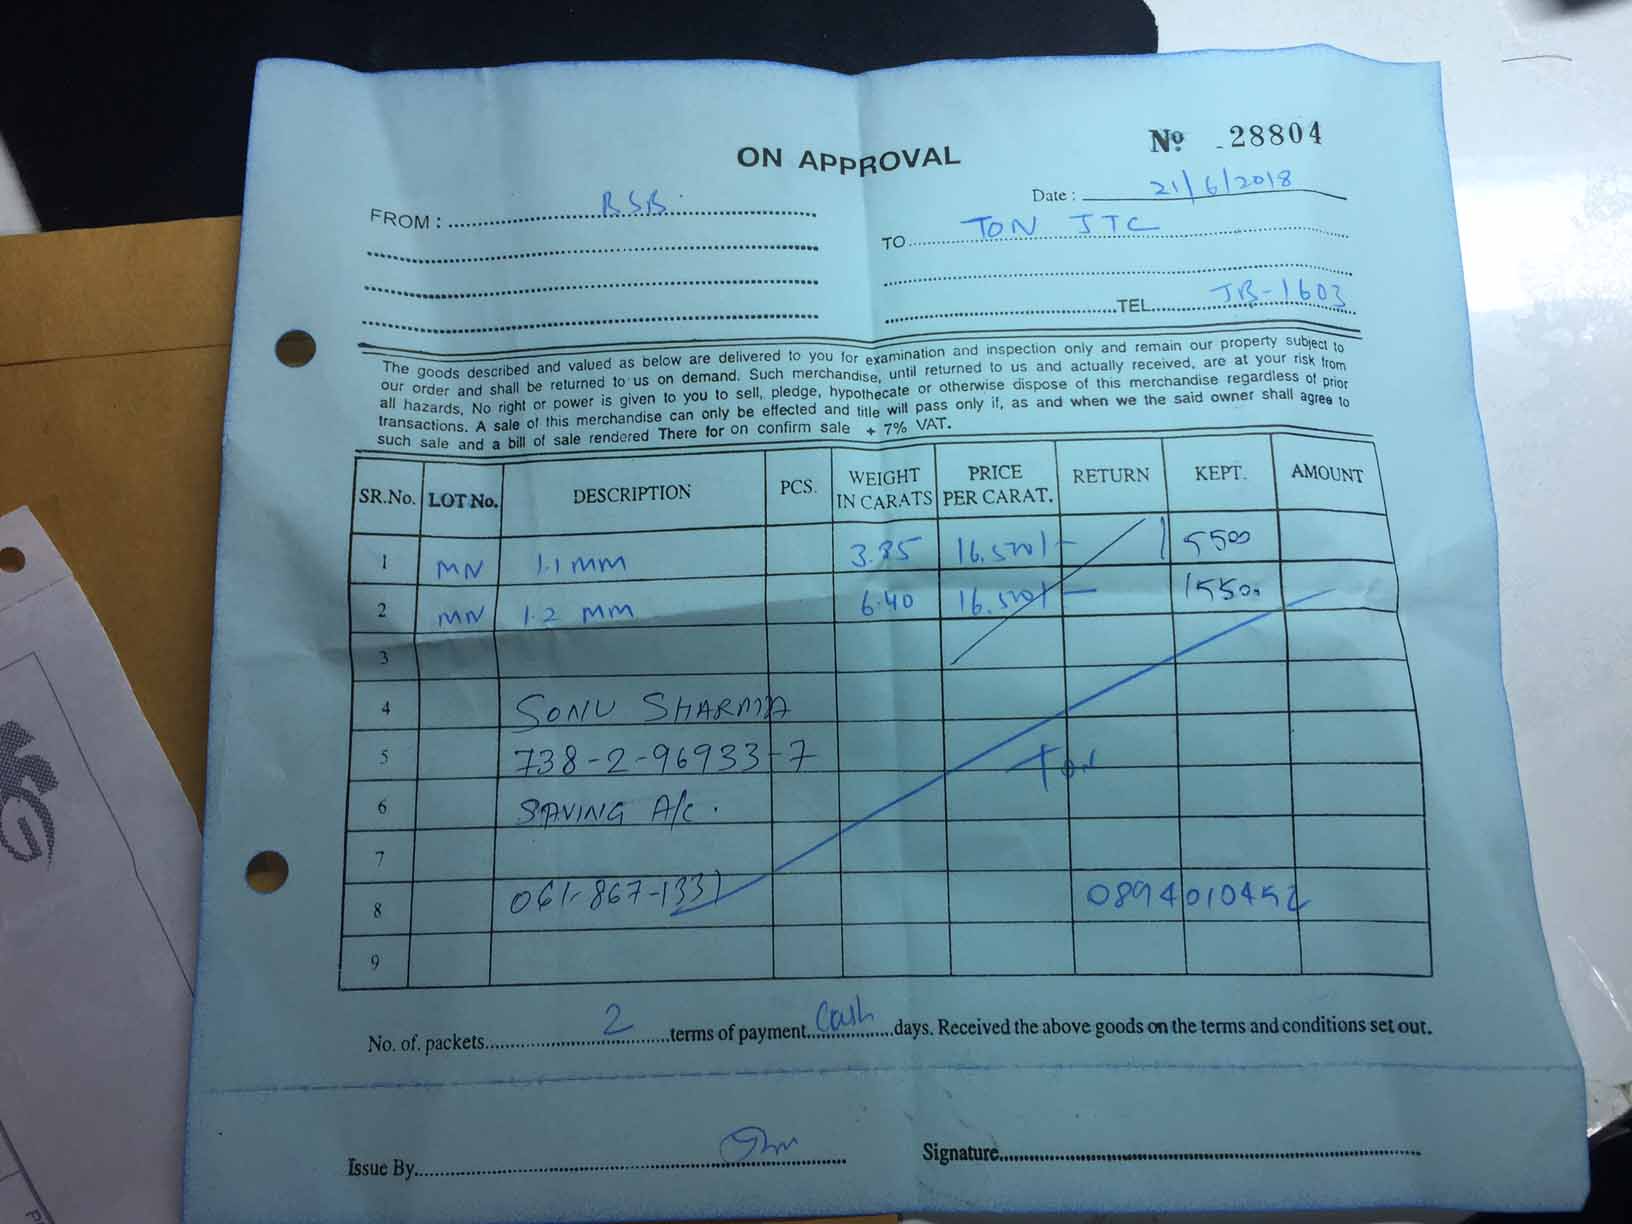 ON APPROVAL
No. 28804
Date : 21/6/2018
FROM : BSB.
TO TON JTC
TEL. JB-1603
The goods described and valued as below are delivered to you for examination and inspection only and remain our property subject to
our order and shall be returned to us on demand. Such merchandise, until returned to us and actually received, are at your risk from
all hazards, No right or power is given to you to sell, pledge, hypothecate or otherwise dispose of this merchandise regardless of prior
transactions. A sale of this merchandise can only be effected and title will pass only if, as and when we the said owner shall agree to
such sale and a bill of sale rendered There for on confirm sale + 7% VAT.
SR.No. LOT No. DESCRIPTION PCS. WEIGHT IN CARATS PRICE PER CARAT. RETURN KEPT. AMOUNT
1 MN 1.1 MM 3.35 5500
2 MN 1.2 MM 6.40 1550.
3
4 SONU SHARMA
5 738-2-96933-7 Ton
6 SAVING A/c.
7
8 061-867-1331 0894010452
9
No. of. packets 2 terms of payment Cash days. Received the above goods on the terms and conditions set out.
Issue By
Signature